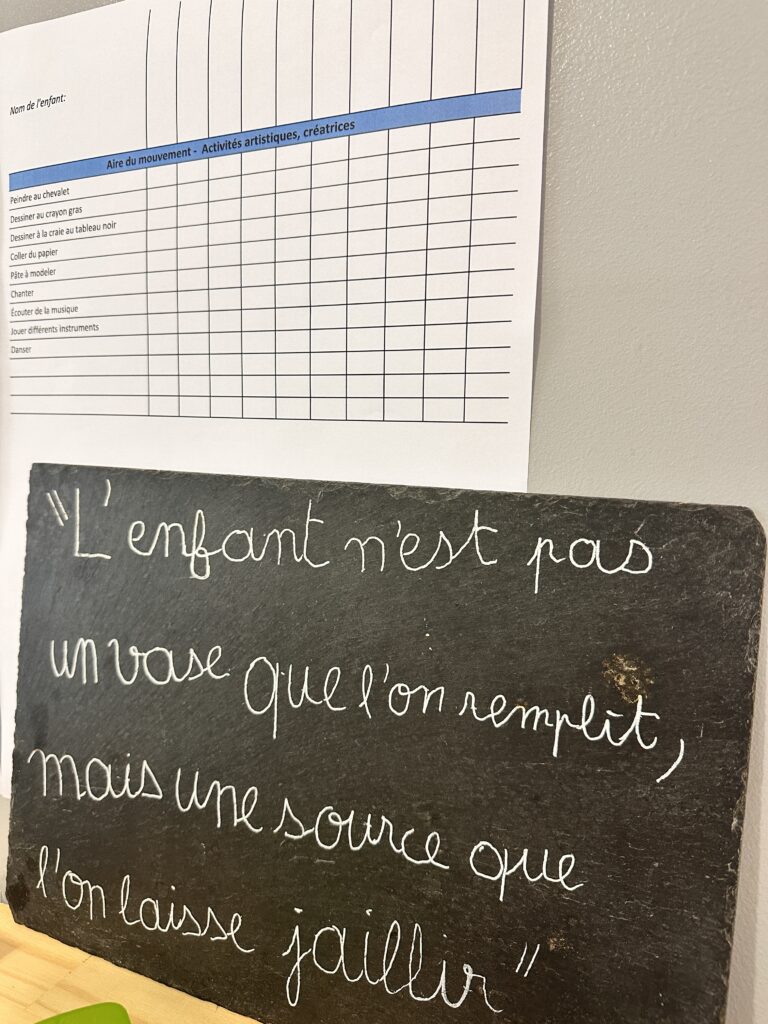 Nom de l'enfant:
Aire du mouvement - Activités artistiques, créatrices
Peindre au chevalet
Dessiner au crayon gras
Dessiner à la craie au tableau noir
Coller du papier
Pâte à modeler
Chanter
Écouter de la musique
Jouer différents instruments
Danser
"L'enfant n'est pas
un vase que l'on remplit,
mais une source que
l'on laisse jaillir"